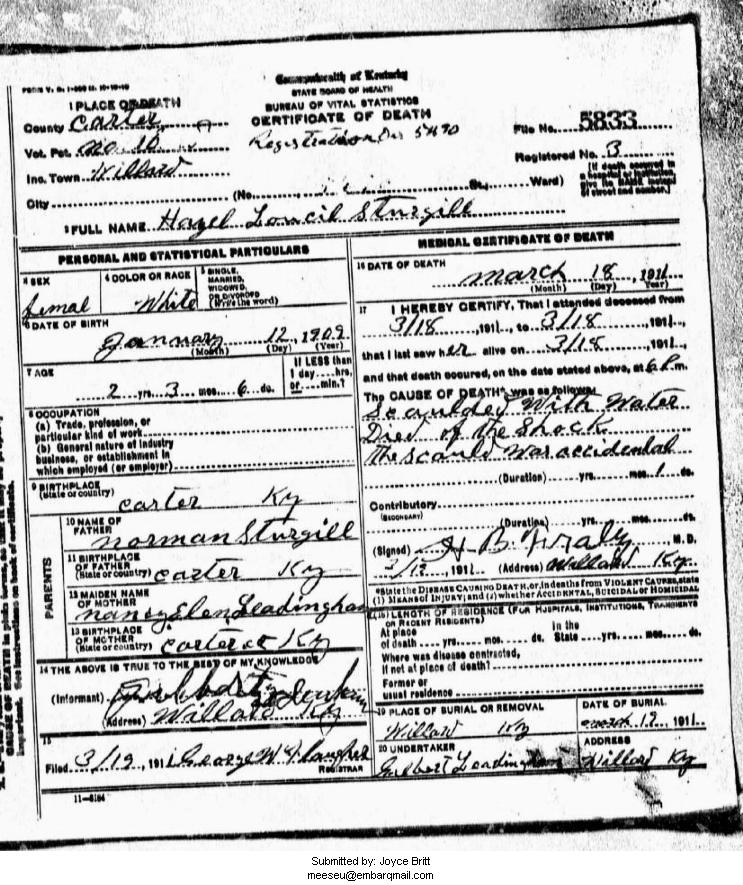 Commonwealth of Kentucky
STATE BOARD OF HEALTH
BUREAU OF VITAL STATISTICS
CERTIFICATE OF DEATH
1 PLACE OF DEATH
County Carter
Vot. Pct. No. 10
Inc. Town Willard
City (No. St., Ward)
Registration Dis 5490
File No. 5833
Registered No. 3
[If death occured in a hospital or institution, give its NAME instead of street and number.]
2 FULL NAME Hazel Loucil Sturgill
PERSONAL AND STATISTICAL PARTICULARS
3 SEX
femal
4 COLOR OR RACE
White
5 SINGLE, MARRIED, WIDOWED, OR DIVORCED (Write the word)
6 DATE OF BIRTH
January 12, 1909
(Month) (Day) (Year)
7 AGE
2 yrs. 3 mos. 6 ds.
If LESS than
1 day ... hrs.
or ... min.?
8 OCCUPATION
(a) Trade, profession, or
particular kind of work
(b) General nature of industry
business, or establishment in
which employed (or employer)
9 BIRTHPLACE
(State or country) Carter Ky
PARENTS
10 NAME OF
FATHER Norman Sturgill
11 BIRTHPLACE
OF FATHER
(State or country) Carter Ky
12 MAIDEN NAME
OF MOTHER Nancy Elen Leadingham
13 BIRTHPLACE
OF MOTHER
(State or country) Carter Ky
14 THE ABOVE IS TRUE TO THE BEST OF MY KNOWLEDGE
(Informant)
(Address) Willard Ky
15
Filed 3/19, 1911 George W
REGISTRAR
11-6184
MEDICAL CERTIFICATE OF DEATH
16 DATE OF DEATH
March 18, 1911
(Month) (Day) (Year)
17 I HEREBY CERTIFY, That I attended deceased from
3/18, 191 , to 3/18, 191 ,
that I last saw her alive on 3/18, 191 ,
and that death occured, on the date stated above, at 6 P. m.
The CAUSE OF DEATH* was as follows:
Scaulded With Water
Died of the Shock
The scauld was accidental
(Duration) yrs. mos. 1 ds.
Contributory
(SECONDARY)
(Duration) yrs. mos. ds.
(Signed) H B Fraly M. D.
191 (Address) Willard Ky
*State the DISEASE CAUSING DEATH, or, in deaths from VIOLENT CAUSES, state
(1) MEANS OF INJURY; and (2) whether ACCIDENTAL, SUICIDAL or HOMICIDAL
18 LENGTH OF RESIDENCE (FOR HOSPITALS, INSTITUTIONS, TRANSIENTS
OR RECENT RESIDENTS)
At place In the
of death yrs. mos. ds. State yrs. mos. ds.
Where was disease contracted,
if not at place of death?
Former or
usual residence
19 PLACE OF BURIAL OR REMOVAL
Willard Ky
DATE OF BURIAL
March 191
20 UNDERTAKER
Gilbert Leadingham
ADDRESS
Willard Ky
Submitted by: Joyce Britt
meeseu@embarqmail.com